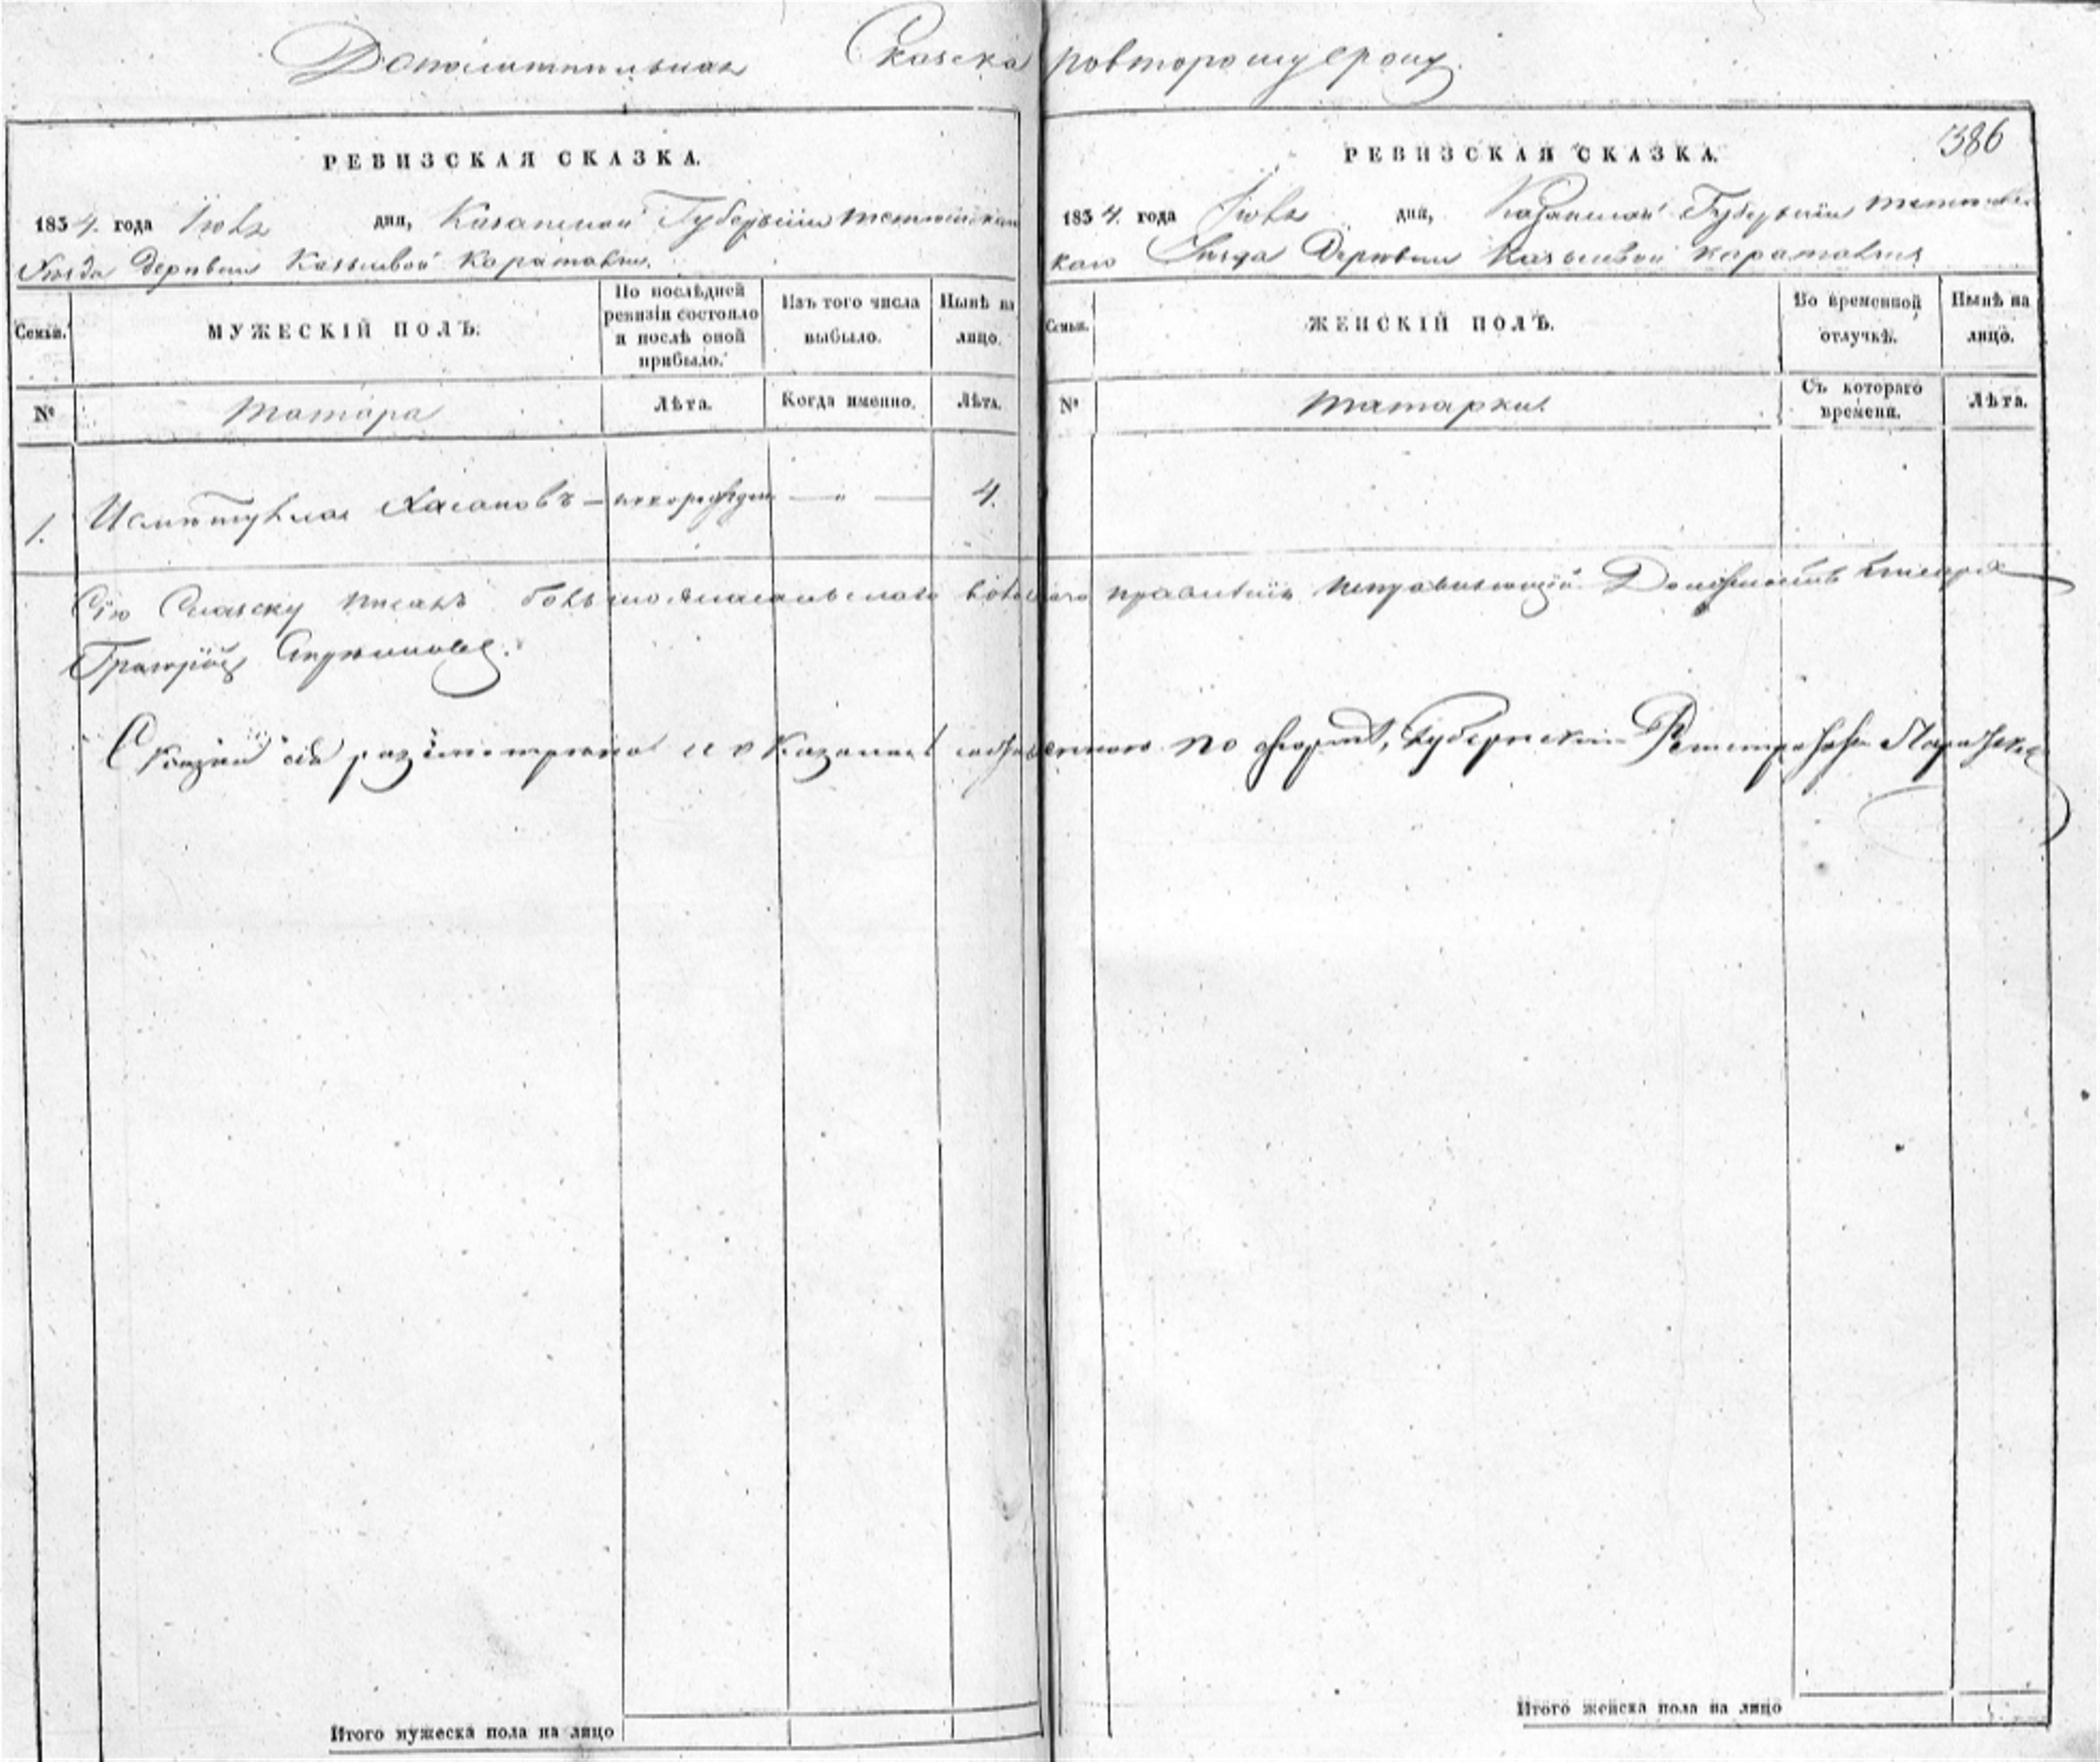 Дополнительная Сказка по второму сроку.
386
РЕВИЗСКАЯ СКАЗКА.
1834. года Іюля дня, Казанской Губерніи Тетюшскаго
Уѣзда деревни Казылевой Караталги.
Семьи.
МУЖЕСКІЙ ПОЛЪ.
По послѣдней ревизіи состояло и послѣ оной прибыло.
Изъ того числа выбыло.
Нынѣ на лицо.
№
Татара
Лѣта.
Когда именно.
Лѣта.
1.
Хасановъ — новорожден — „ — 4.
РЕВИЗСКАЯ СКАЗКА.
1834. года Іюля дня, Казанской Губерніи Тетюш
каго Уѣзда Деревни
Семьи.
ЖЕНСКІЙ ПОЛЪ.
Во временной отлучкѣ.
Нынѣ на лицо.
№
Татарки
Съ котораго времени.
Лѣта.
Сію Сказску писалъ волостнаго правленія исправляющій Должность писаря
Григорій
Сказка сія разсмотрена и оказалась по формѣ, Губернскій Регистраторъ
Итого мужеска пола на лицо
Итого женска пола на лицо